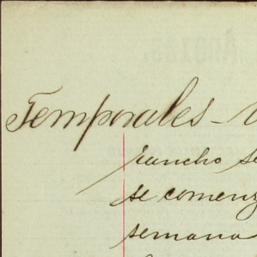 Temporales -
rancho se
se comenz
semana